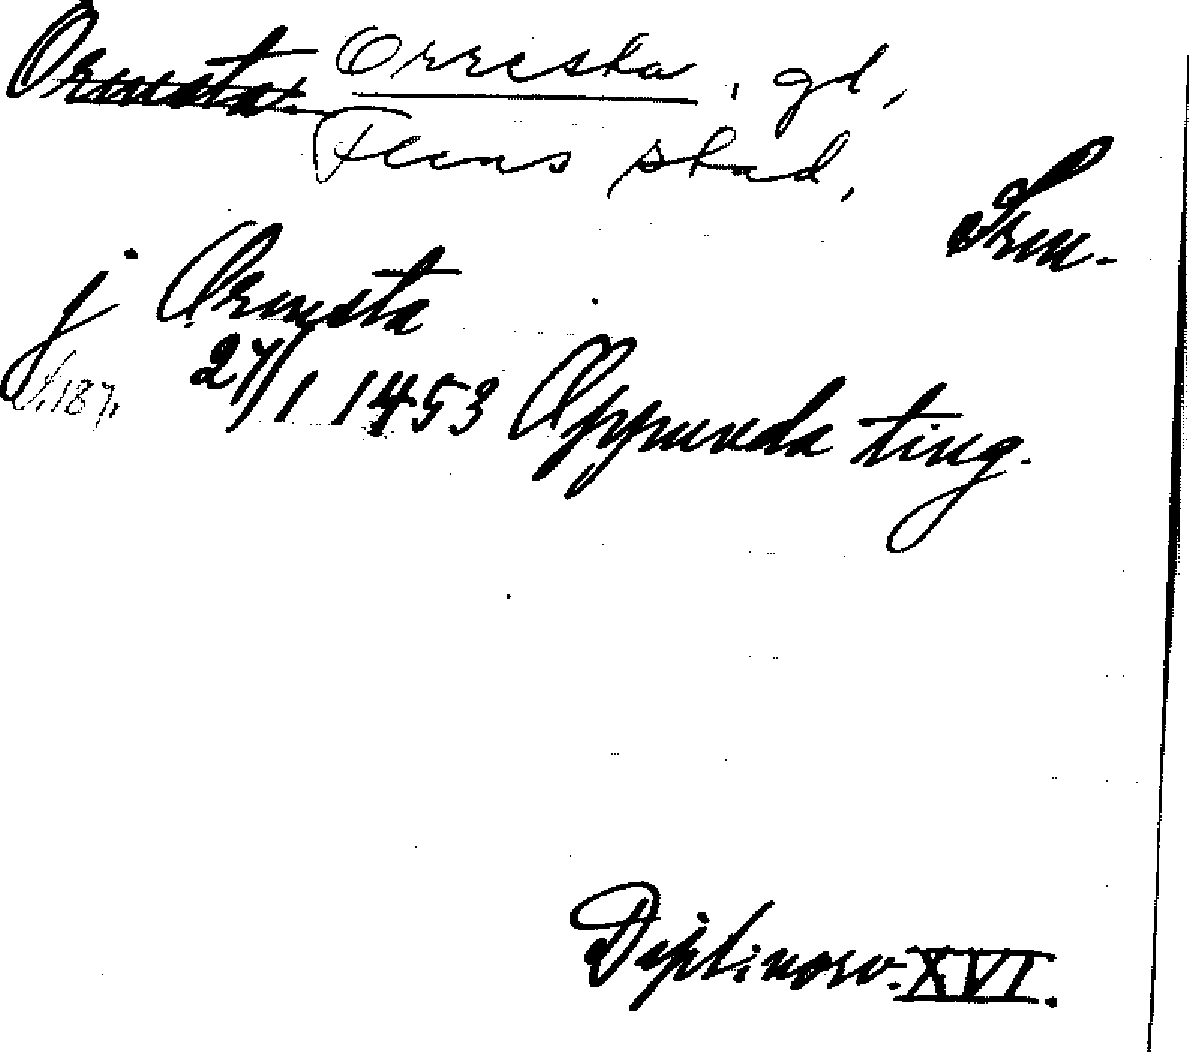 Ormsta: Orresta, gd,
Flens stad,
Srm.
j Ormsta
s. 187. 27/1 1453 Oppunda ting.
Dipl. norv. XVI.